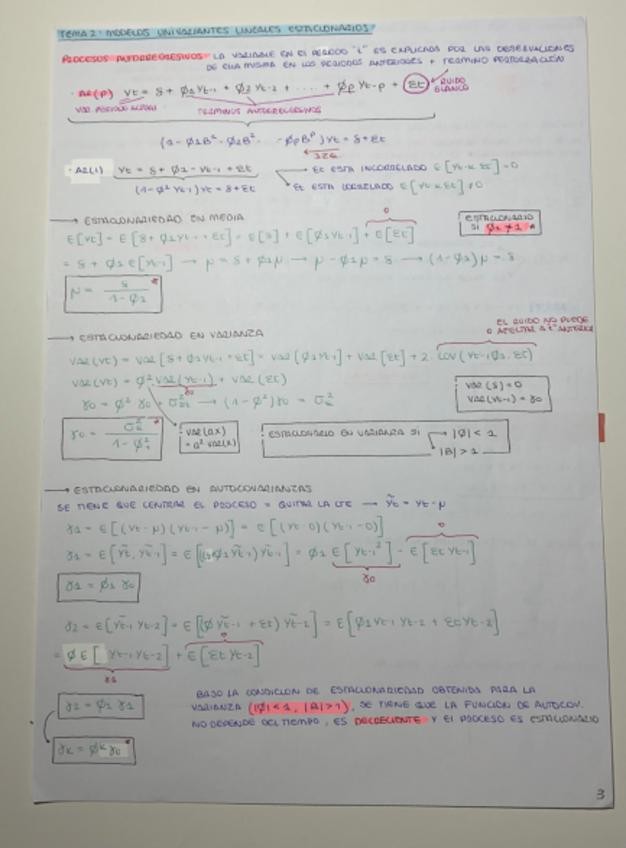 TEMA 2: MODELOS UNIVARIANTES LINEALES ESTACIONARIOS
PROCESOS AUTORREGRESIVOS: LA VARIABLE EN EL PERIODO "t" ES EXPLICADA POR LAS OBSERVACIONES
DE ELLA MISMA EN LOS PERIODOS ANTERIORES + TERMINO PERTURBACIÓN
· AR(p) Yt = δ + ϕ1 Yt-1 + ϕ2 Yt-2 + ..... + ϕp Yt-p + εt RUIDO BLANCO
TERMINOS AUTORREGRESIVOS
(1 - ϕ1B - ϕ2B² - ϕpB^p) Yt = δ + εt
· AR(1) Yt = δ + ϕ1 - Yt-1 + εt → εt ESTA INCORRELADO E[Yt-k εt] = 0
(1-ϕ² Yt-1) Yt = δ + εt εt ESTA CORRELADO E[Yt-k εt] ≠ 0
→ ESTACIONARIEDAD EN MEDIA
ESTACIONARIO SI ϕ1 ≠ 1 *
E[Yt] = E[δ + ϕ1 Yt-1 + εt] = E[δ] + E[ϕ1 Yt-1] + E[εt] 0
= δ + ϕ1 E[Yt-1] → μ = δ + ϕ1μ → μ - ϕ1μ = δ → (1-ϕ1)μ = δ
μ = δ / 1 - ϕ1 *
→ ESTACIONARIEDAD EN VARIANZA
EL RUIDO NO PUEDE
VAR(Yt) = VAR[δ + ϕ1 Yt-1 + εt] = VAR[ϕ1 Yt-1] + VAR[εt] + 2 · COV(Yt-1 ϕ1 · εt)
VAR(Yt) = ϕ² VAR(Yt-1) + VAR(εt)
VAR(δ) = 0
VAR(Yt-1) = γ0
γ0 = ϕ² γ0 + σ² → (1-ϕ²) γ0 = σ²
γ0 = σ² / 1 - ϕ² *
· VAR(ax) = a² VAR(x)
ESTACIONARIO EN VARIANZA SI → |ϕ| < 1
|B| > 1
→ ESTACIONARIEDAD EN AUTOCOVARIANZAS
SE TIENE QUE CENTRAR EL PROCESO = QUITAR LA CTE → Ỹt = Yt - μ
γ1 = E[(Yt - μ)(Yt-1 - μ)] = E[(Yt - 0)(Yt-1 - 0)]
γ1 = E[Ỹt, Ỹt-1] = E[(ϕ1 Ỹt-1) Ỹt-1] = ϕ1 E[Yt-1²] - E[εt Yt-1] 0
γ0
γ1 = ϕ1 γ0
γ2 = E[Ỹt-1 Yt-2] = E[(ϕ Ỹt-1 + εt) Ỹt-2] = E[ϕ1 Yt-1 Yt-2 + εt Yt-2]
= ϕ E[Yt-1 Yt-2] + E[εt Yt-2] 0
γ1
γ2 = ϕ1 γ1
BAJO LA CONDICION DE ESTACIONARIEDAD OBTENIDA PARA LA
VARIANZA (|ϕ| < 1, |B| > 1), SE TIENE QUE LA FUNCION DE AUTOCOV.
NO DEPENDE DEL TIEMPO, ES DECRECIENTE Y EL PROCESO ES ESTACIONARIO
γk = ϕ^k γ0 *
3